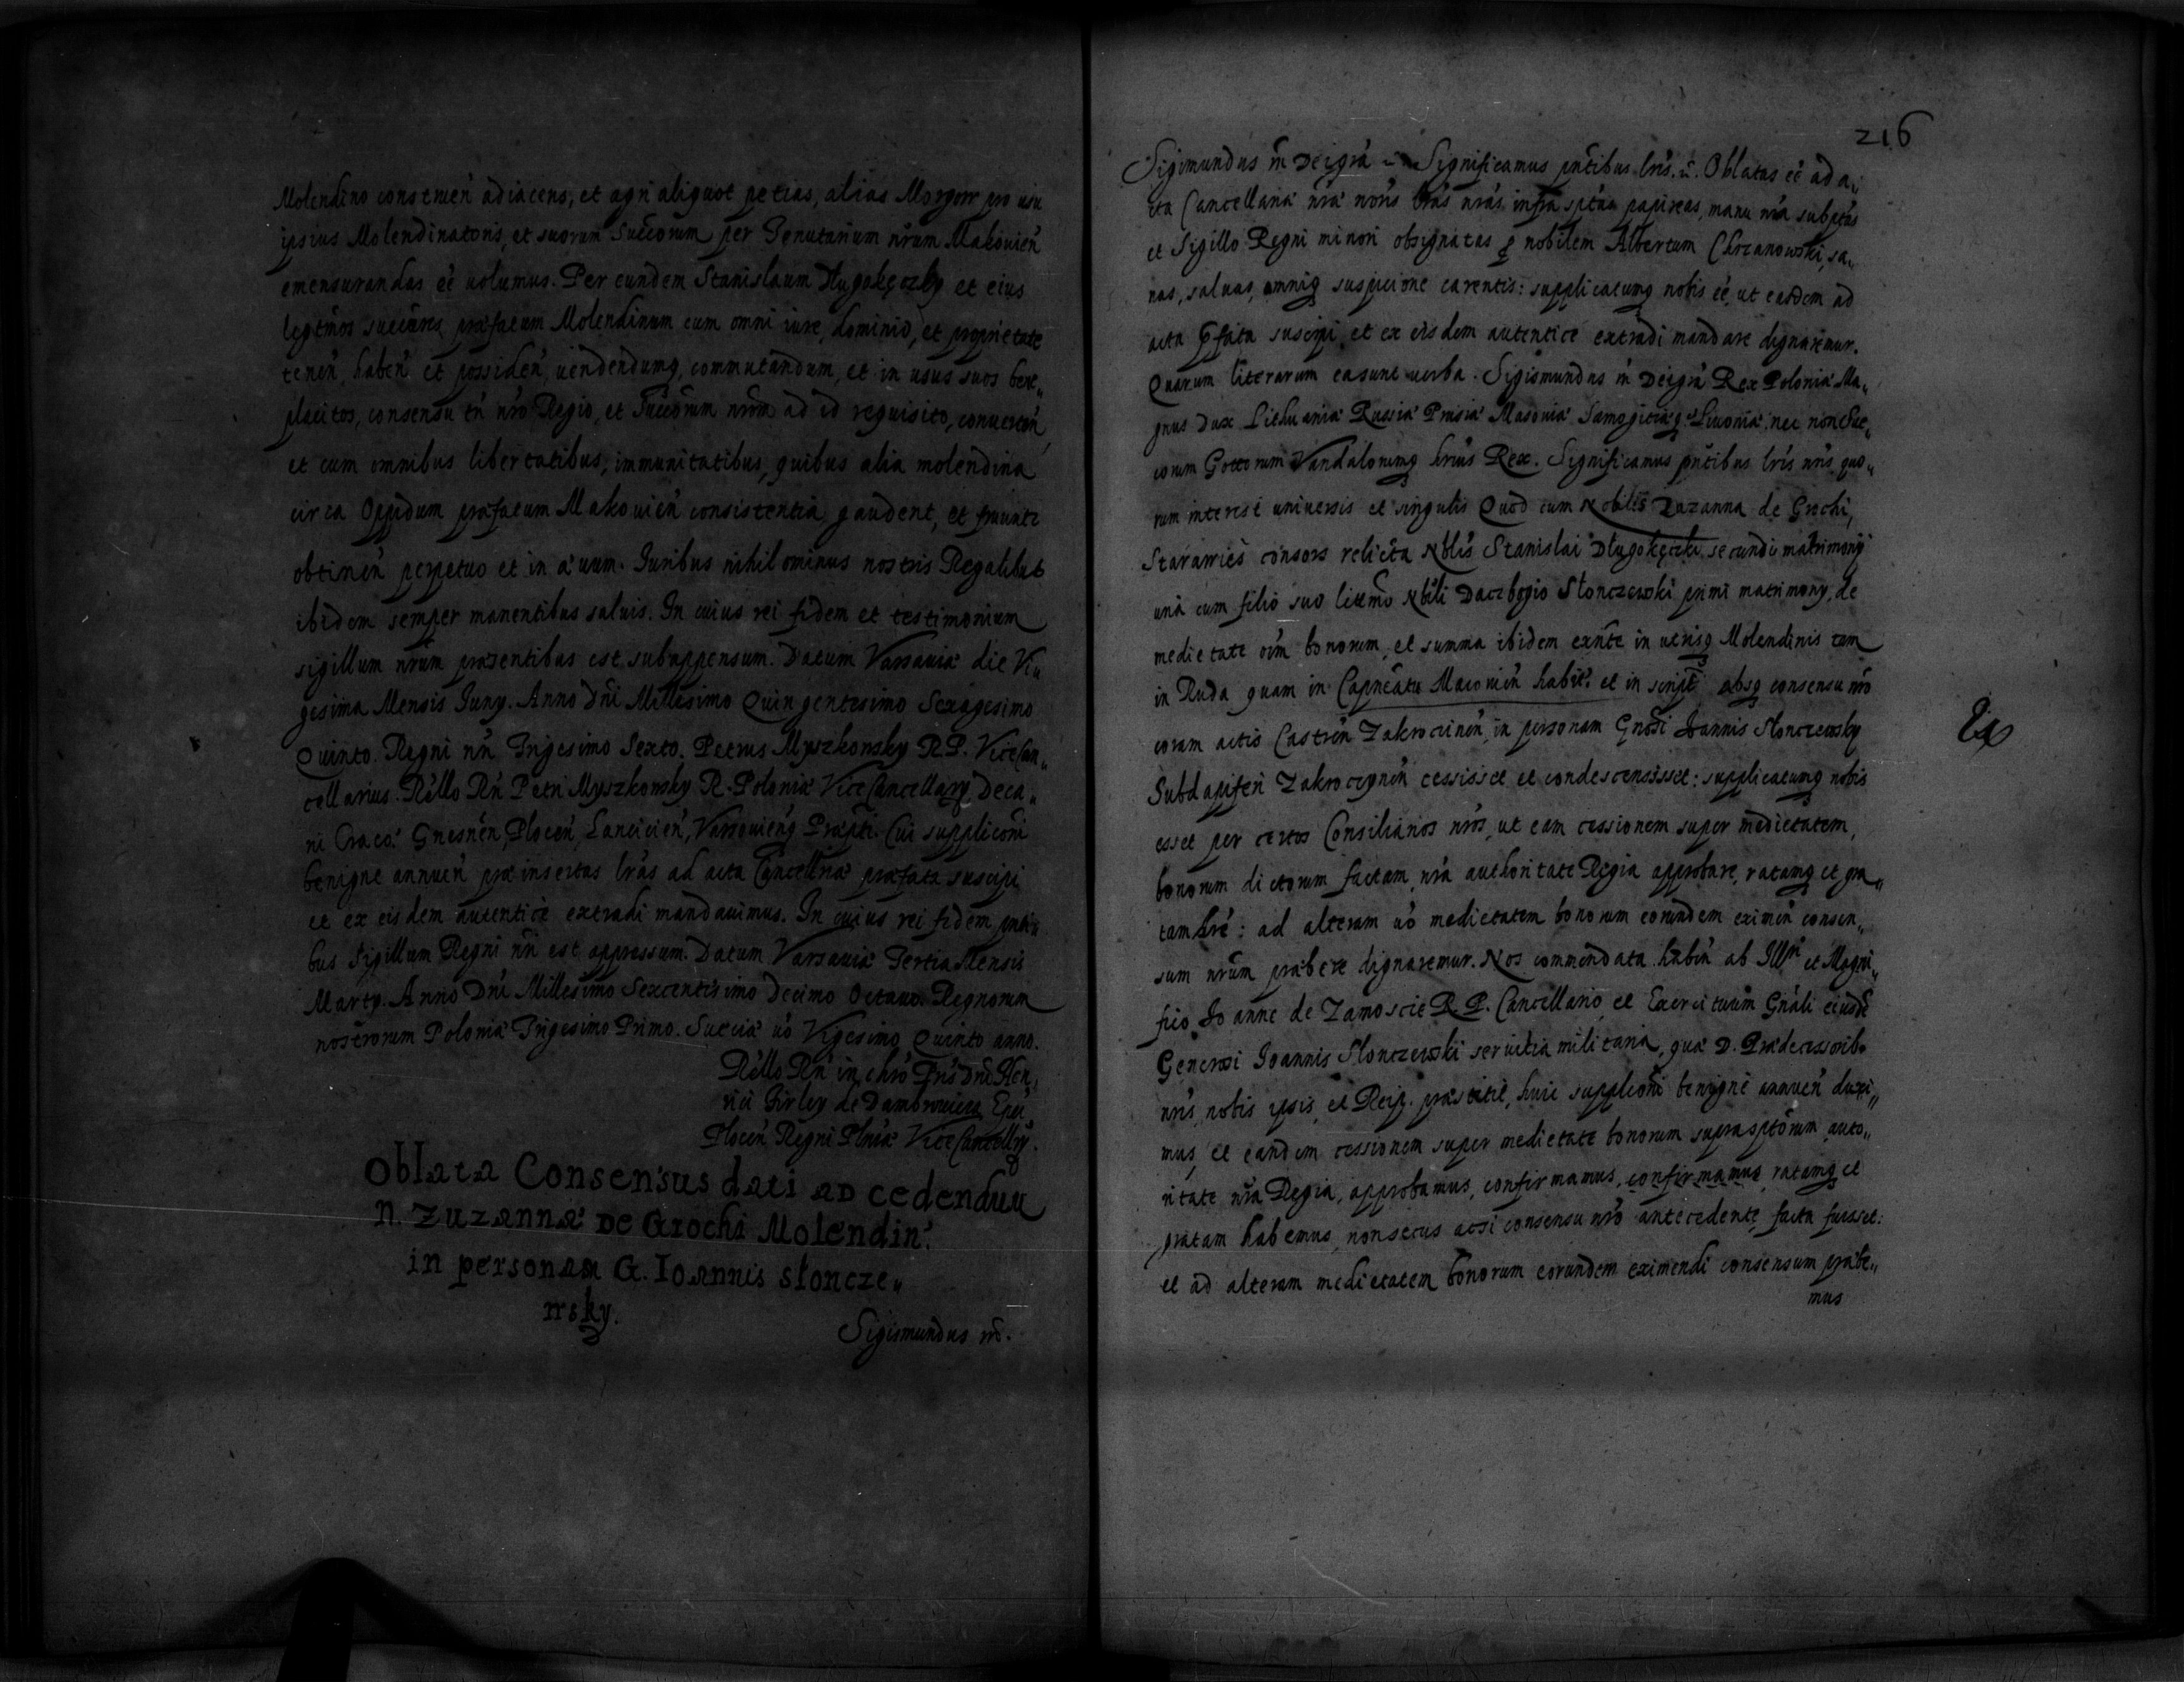 Molendino construen̄ adiacens, et agri aliquot petias, alias Morgow pro usu
ipsius Molendinatoris et suorum Succorum per Tenutarium nr̄um Makouien̄
emensurandas eē uolumus. Per eundem Stanislaum Dlugokęczky et eius
legt̄mos succēres præfatum Molendinum cum omni iure, dominio, et proprietate
tenen̄, haben̄ et possiden̄, uendendumq, commutandum, et in usus suos bene„
placitos, consensu tn̄ nr̄o Regio, et Succōrum nrōm ad id requisito, conuerten̄,
et cum omnibus libertatibus, immunitatibus, quibus alia molendina
circa Oppidum præfatum Makouien̄ consistentia gaudent, et fruunt
obtinen̄ perpetuo et in æuum. Iuribus nihilominus nostris Regalibus
ibidem semper manentibus saluis. In cuius rei fidem et testimonium
sigillum nr̄um præsentibus est subappensum. Datum Varsauiæ die Vi„
gesima Mensis Iuny. Anno Dn̄i Millesimo Quingentesimo Sexagesimo
Quinto. Regni nr̄i Trigesimo Sexto. Petrus Myszkonsky R. P. ViceCan„
cellarius. Rēllo Rn̄ Petri Myszkonsky R. Poloniæ ViceCancellary Deca„
ni Craco: Gnesnēn, Plocen̄, Lancicien̄, Varsouienq Præpti. Cui supplicōni
benigne annuen̄ præinsertas lr̄as ad acta Cancellriæ præfata suscipi
et ex eisdem autentice extradi mandauimus. In cuius rei fidem pnti„
bus Sigillum Regni nr̄i est appressum. Datum Varsauiæ Tertia Mensis
Marty. Anno Dn̄i Millesimo Sexcentesimo Decimo Octauo. Regnorum
nostrorum Poloniæ Trigesimo Primo. Sueciæ uō Vigesimo Quinto anno.
Rēllo Rn̄ in chrō Pris Dn̄i Hen„
rici Firley de Dambrouica Epi
Plocen̄ Regni Plniæ ViceCancellry.
Oblata Consensus dati ad cedendum
N. Zuzannæ de Grochi Molendin:
in personam G. Ioannis słoncze„
wsky.
Sigismundus m̄.
216
Sigismundus m̄ Dei grā Significamus pn̄tibus lris. Oblatas eē ad a„
cta Cancellariæ nræ noris lr̄as nr̄as infra sptas papireas, manu nrā subptas
et Sigillo Regni minori obsignatas p nobilem Albertum Chrzanowski, sa„
nas, saluas, omniq suspicione carentes: supplicatumq nobis eē, ut easdem ad
acta p̄fata suscipi et ex eisdem autentice extradi mandare dignaremur.
Quarum literarum ea sunt uerba. Sigismundus m̄ Dei grā Rex Poloniæ Ma„
gnus Dux Lithuaniæ Russiæ Prusiæ Masouiæ Samogitiæq Liuoniæ, nec non Sue„
corum Gottorum Vandalorumq hrius Rex. Significamus pn̄tibus lris nris quo„
rum interest uniuersis et singulis Quod cum Nobilis Zuzanna de Grochi,
Starawies consors relicta Nblis Stanislai Dlugokęczki secundi matrimony
una cum filio suo Nbili Daczbogio Słonczewski primi matrimony, de
medietate oīm bonorum, et summa ibidem exn̄te in utrisq Molendinis tam
in Ruda quam in Capncatu Macouien̄ habit: et in script absq consensu nrō
coram actis Castren̄ Zakrocimen̄, in personam Gnōsi Ioannis Słonczewsky
Subdapiferi Zakroczymen̄ cessisset et condescensisset: supplicatumq nobis
esset per certos Consiliarios nrōs, ut eam cessionem super medietatem,
bonorum dictorum factam, nrā authoritate Regia approbare, ratamq et gra„
tam hrē: ad alteram uō medietatem bonorum eorundem eximen̄ consen„
sum nr̄um præbere dignaremur. Nos commendata haben̄ ab Illri et Magni„
fico Ioanne de Zamoscie R. P. Cancellario, et Exercituum Gnāli eiusdē
Generosi Ioannis Słonczewski seruitia militaria, quæ D. Prædecessorib.
nris, nobis ipsis, et Reip. præstitit, huic supplicōni benigne annuen̄ duxi„
mus, et eandem cessionem super medietate bonorum suprasptōrum auto„
ritate nrā Regia, approbamus, confirmamus, confirmamus ratamq et
gratam habemus, non secus ac si consensu nrō antecedente facta fuisset:
et ad alteram medietatem bonorum eorundem eximendi consensum præbe„
mus